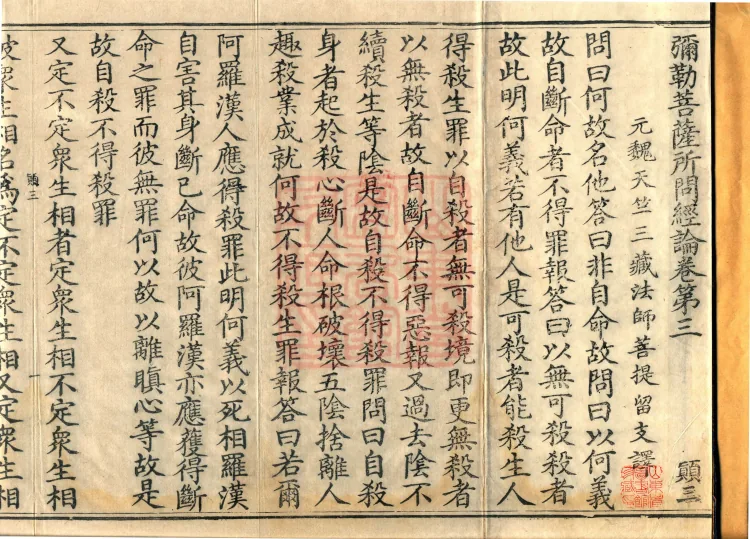 彌勒菩薩所問經論卷第三 顛三
元魏天竺三藏法師菩提留支譯
問曰何故名他答曰非自命故問曰以何義
故自斷命者不得罪報答曰以無可殺殺者
故此明何義若有他人是可殺者能殺生人
得殺生罪以自殺者無可殺境即更無殺者
以無殺者故自斷命不得惡報又過去陰不
續殺生等陰是故自殺不得殺罪問曰自殺
身者起於殺心斷人命根破壞五陰捨離人
趣殺業成就何故不得殺生罪報答曰若爾
阿羅漢人應得殺罪此明何義以死相羅漢
自害其身斷已命故彼阿羅漢亦應獲得斷
命之罪而彼無罪何以故以離瞋心等故是
故自殺不得殺罪
又定不定衆生相者定衆生相不定衆生相
顛三
彼衆生相名爲定不定衆生相又定衆生相